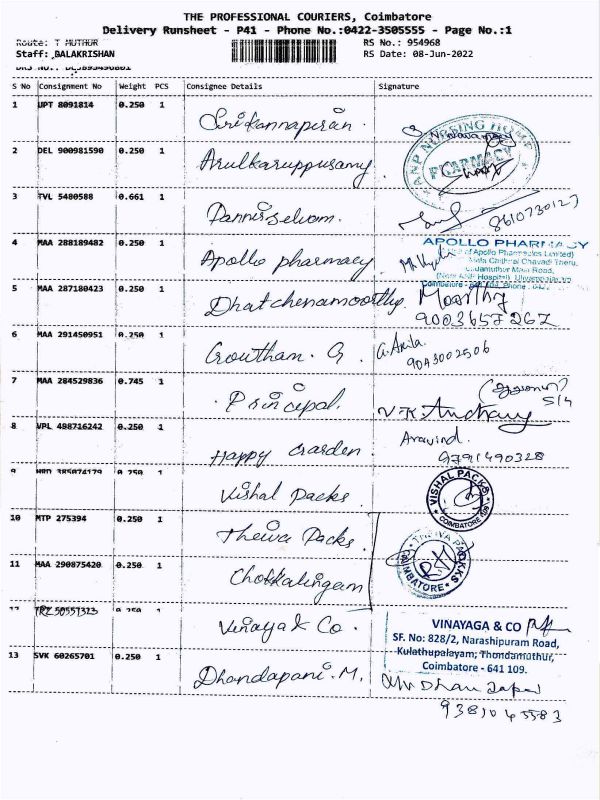 THE PROFESSIONAL COURIERS, Coimbatore
Delivery Runsheet - P41 - Phone No.:0422-3505555 - Page No.:1
Route: T MUTHUR
RS No.: 954968
Staff: BALAKRISHAN
RS Date: 08-Jun-2022
S No Consignment No Weight PCS Consignee Details Signature
1 UPT 8091814 0.250 1
Srikannapiran.
NURSING HOME
PHARMACY
2 DEL 900981590 0.250 1
Arulkaruppusamy
3 TVL 5480588 0.661 1
Pannirselvam.
8610730127
4 MAA 288189482 0.250 1
Apollo pharmacy
APOLLO PHARMACY
(Unit of Apollo Pharmacies Limited)
5 MAA 287180423 0.250 1
Dhatchenamoorthy. Moorthy
9003657267
6 MAA 291450951 0.250 1
Gowtham. G
9043002506
7 MAA 284529836 0.745 1
Principal.
V.K. Anthony
8 VPL 498716242 0.250 1
Happy Garden.
Aravind.
9791490328
9 0.250 1
Vishal Packs
VISHAL PACKS
COIMBATORE
10 MTP 275394 0.250 1
Theiva Packs.
THEIVA PACKS
COIMBATORE
11 MAA 290875420 0.250 1
Chokkalingam
12 TRZ 50551323 0.250 1
Vinayak Co.
VINAYAGA & CO
SF. No: 828/2, Narashipuram Road,
Kulathupalayam, Thondamuthur,
Coimbatore - 641 109.
13 SVK 60265701 0.250 1
Dhandapani. M.
9381045583